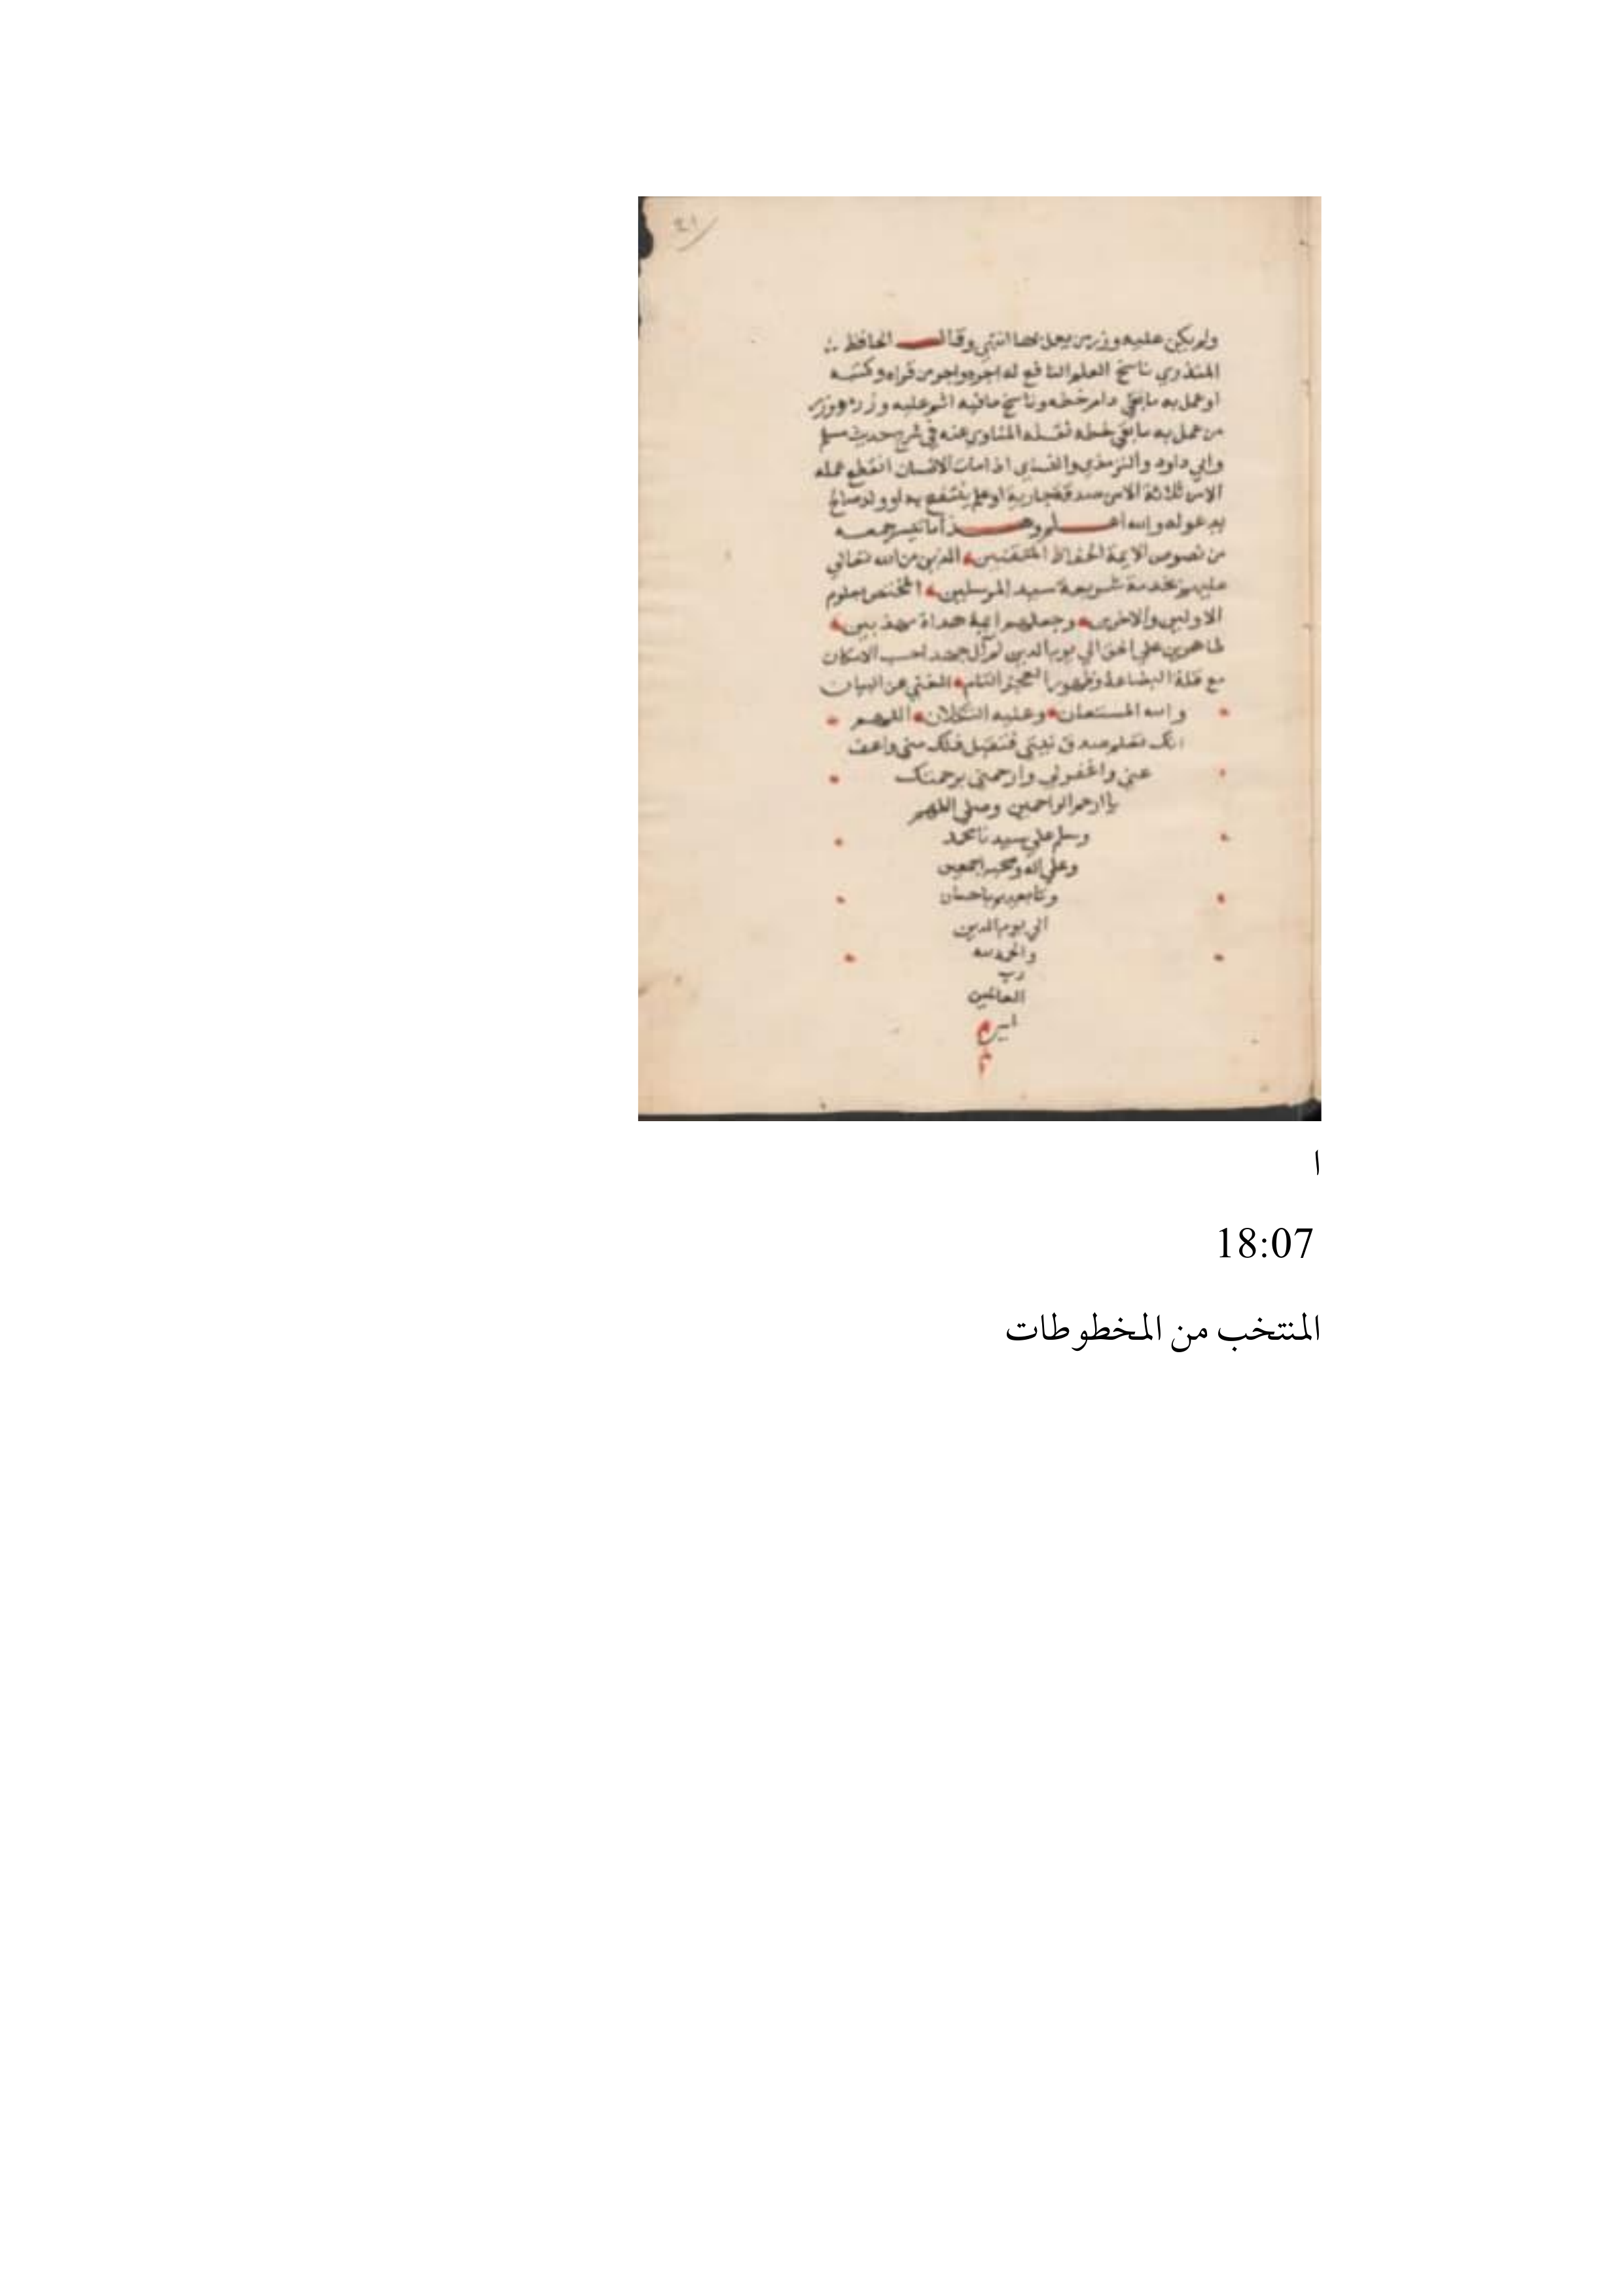 ٤١
ولم يكن عليه وزر من يعمل بها انتهي وقال الحافظ
المنذري ناسخ العلم النافع له اجره واجر من قراه وكتبه
او عمل به ما بقي دام خطه وناسخ ما فيه اثم عليه وزره ووزر
من عمل به ما بقي خطه نقله المناوي عنه في شرح حديث مسلم
وابي داود والترمذي والنسائي اذا مات الانسان انقطع عمله
الا من ثلاثة الا من صدقة جارية او علم ينتفع به او ولد صالح
يدعو له والله اعلم وهذا ما تيسر جمعه
من نصوص الايمة الحفاظ المتقنين الذين من الله تعالي
عليهم بخدمة شريعة سيد المرسلين المختص بعلوم
الاولين والاخرين وجعلهم ايمة هداة مهذبين
ظاهرين علي الحق الي يوم الدين لم آل جهدا حسب الامكان
مع قلة البضاعة وظهور العجز التام المغني عن البيان
والله المستعان وعليه التكلان اللهم
انك تعلم صدق نيتي فتقبل ذلك مني واعف
عني واغفر لي وارحمني برحمتك
يا ارحم الراحمين وصلي اللهم
وسلم علي سيدنا محمد
وعلي اله وصحبه اجمعين
وتابعيهم باحسان
الي يوم الدين
والحمد لله
رب
العالمين
امين
ا
18:07
المنتخب من المخطوطات